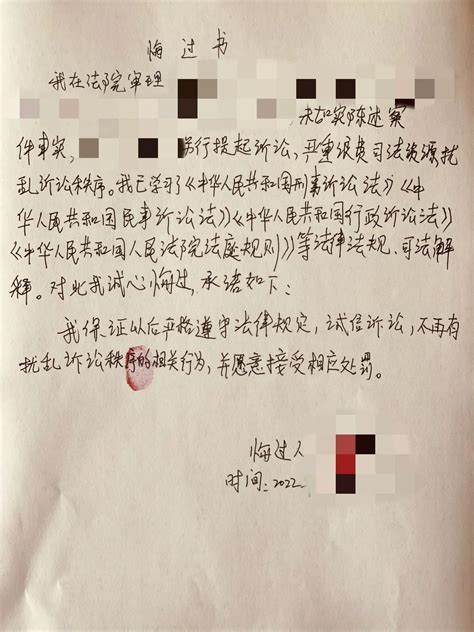 悔过书
我在法院审理
未如实陈述案
件事实，另行提起诉讼，严重浪费司法资源扰
乱诉讼秩序。我已学习了《中华人民共和国刑事诉讼法》《中
华人民共和国民事诉讼法》《中华人民共和国行政诉讼法》
《中华人民共和国人民法院法庭规则》等法律法规、司法解
释。对此我诚心悔过，承诺如下：
我保证以后严格遵守法律规定，诚信诉讼，不再有
扰乱诉讼秩序的相关行为，并愿意接受相应处罚。
悔过人
时间：2022